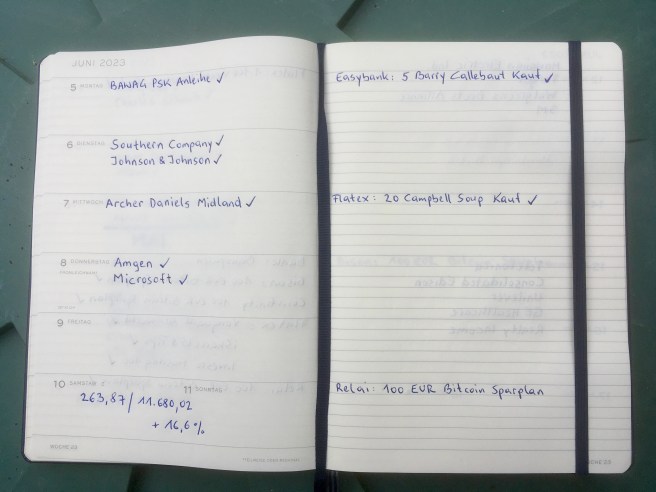 JUNI 2023
5 MONTAG BAWAG PSK Anleihe ✓
6 DIENSTAG Southern Company ✓
Johnson & Johnson ✓
7 MITTWOCH Archer Daniels Midland ✓
8 DONNERSTAG Amgen ✓
Microsoft ✓
9 FREITAG
10 SAMSTAG 11 SONNTAG
263,87 / 11.680,02
+ 16,6%
WOCHE 23
Easybank: 5 Barry Callebaut Kauf ✓
Flatex: 20 Campbell Soup Kauf ✓
Relai: 100 EUR Bitcoin Sparplan
WOCHE 23